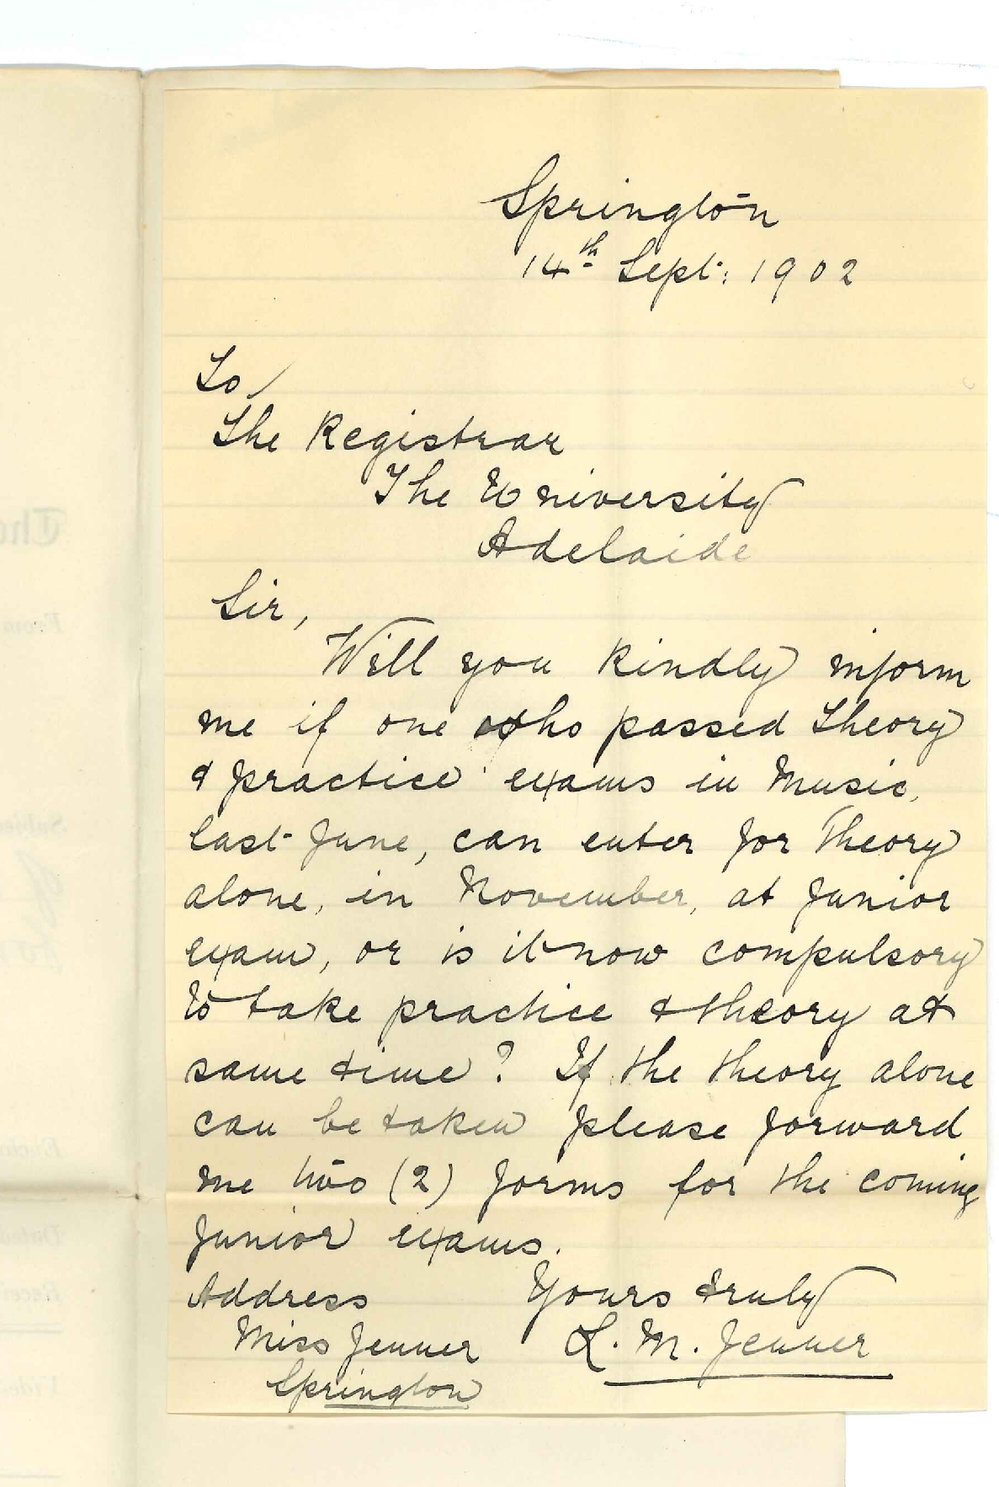 Springton
14th Sept: 1902
To/
The Registrar
The University
Adelaide
Sir,
Will you kindly inform
me if one who passed Theory
& practice exams in Music,
last June, can enter for Theory
alone, in November, at Junior
exam, or is it now compulsory
to take practice & theory at
same time? If the theory alone
can be taken please forward
me two (2) forms for the coming
Junior exams.
Address Yours truly
Miss Jenner L. M. Jenner
Springton